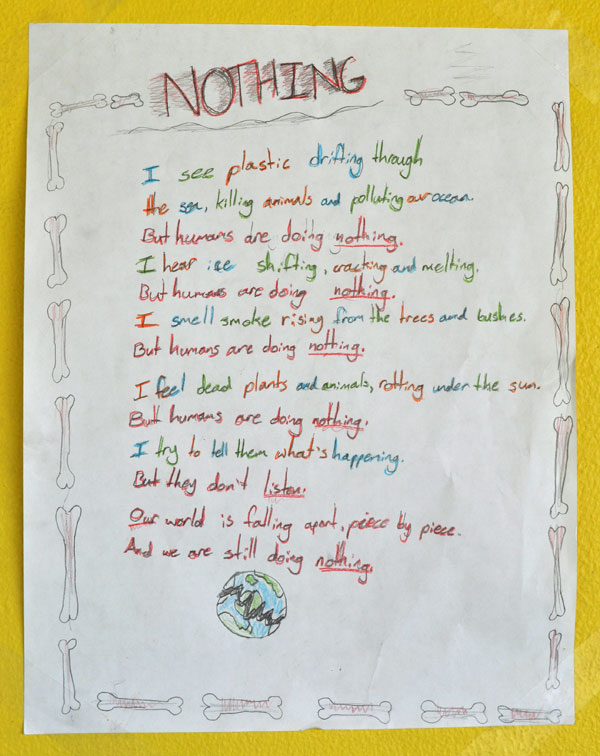 NOTHING
I see plastic drifting through
the sea, killing animals and polluting our ocean.
But humans are doing nothing.
I hear ice shifting, cracking and melting.
But humans are doing nothing.
I smell smoke rising from the trees and bushes.
But humans are doing nothing.
I feel dead plants and animals, rotting under the sun.
But humans are doing nothing.
I try to tell them what's happening.
But they don't listen.
Our world is falling apart, piece by piece.
And we are still doing nothing.